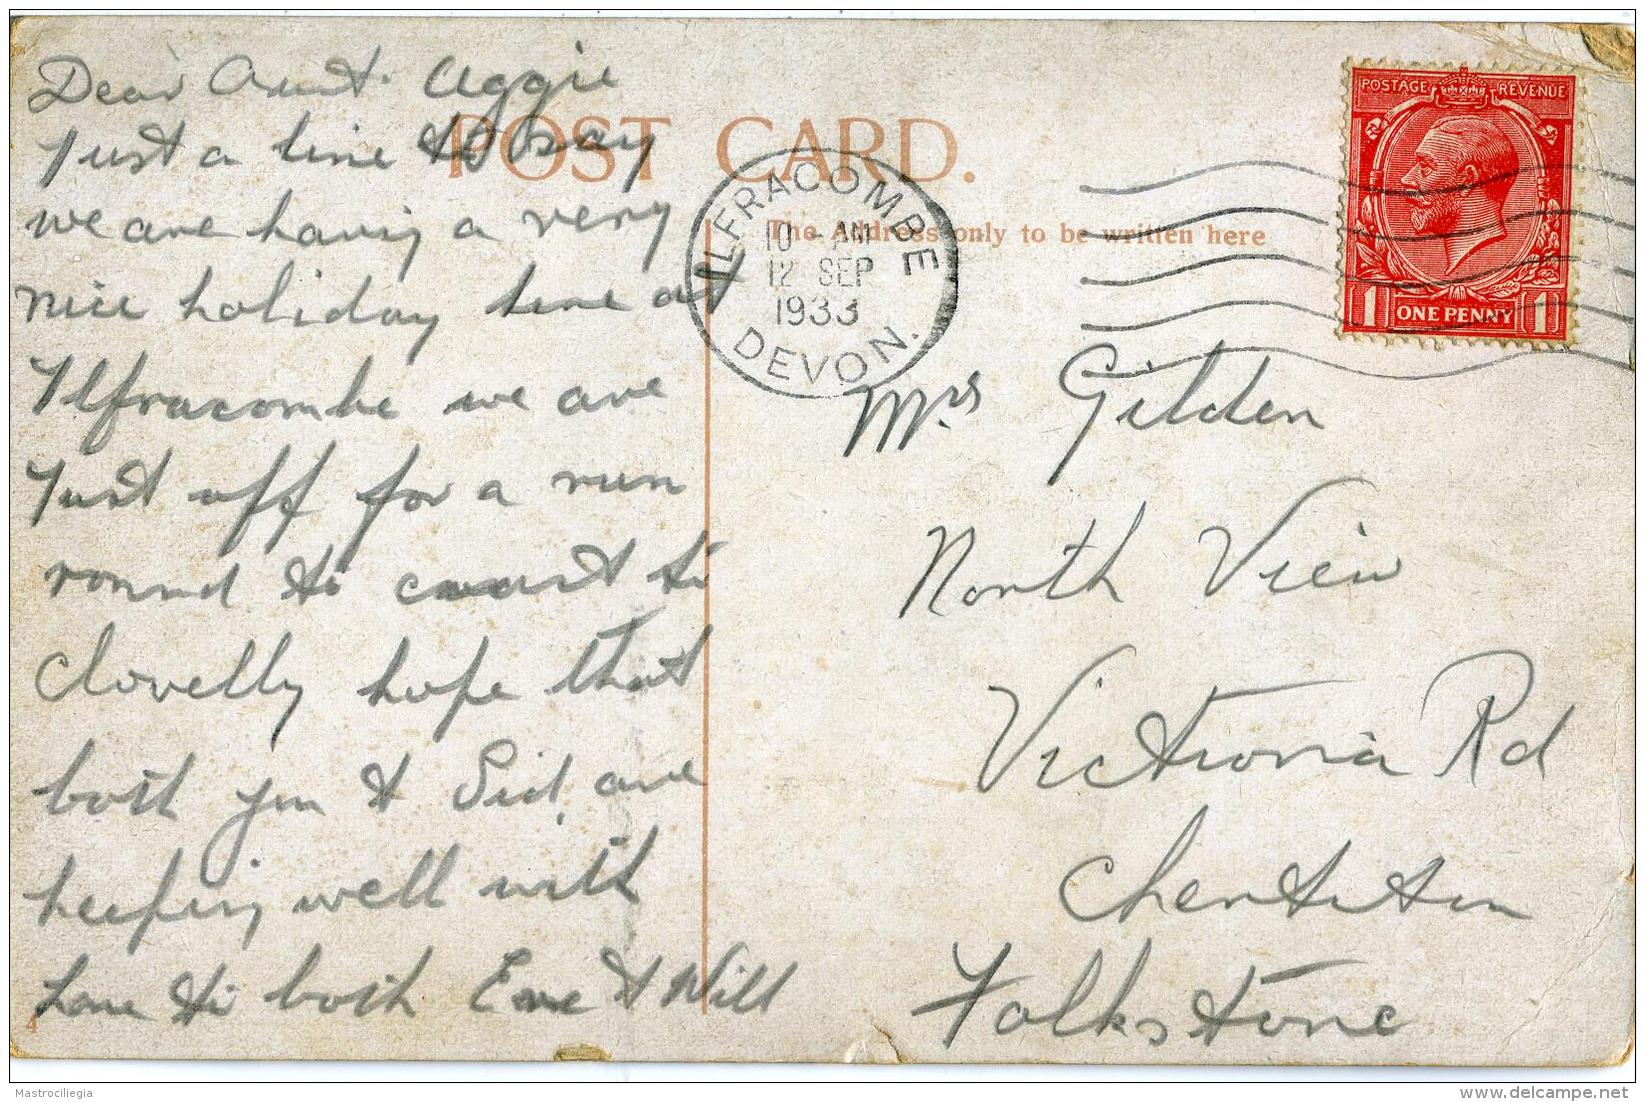 Dear Aunt. Aggie
Just a line to say
we are having a very
nice holiday here at
Ilfracombe we are
Just off for a run
round to coast to
Clovelly hope that
both you & Sid are
keeping well with
Love to both Eve & Will
4
POST CARD.
The Address only to be written here
ILFRACOMBE
10 - AM
12 SEP
1933
DEVON.
POSTAGE REVENUE
1 ONE PENNY 1
Mrs Gilden
North View
Victoria Rd
Cheritton
Folkstone
Mastrociliegia
www.delcampe.net